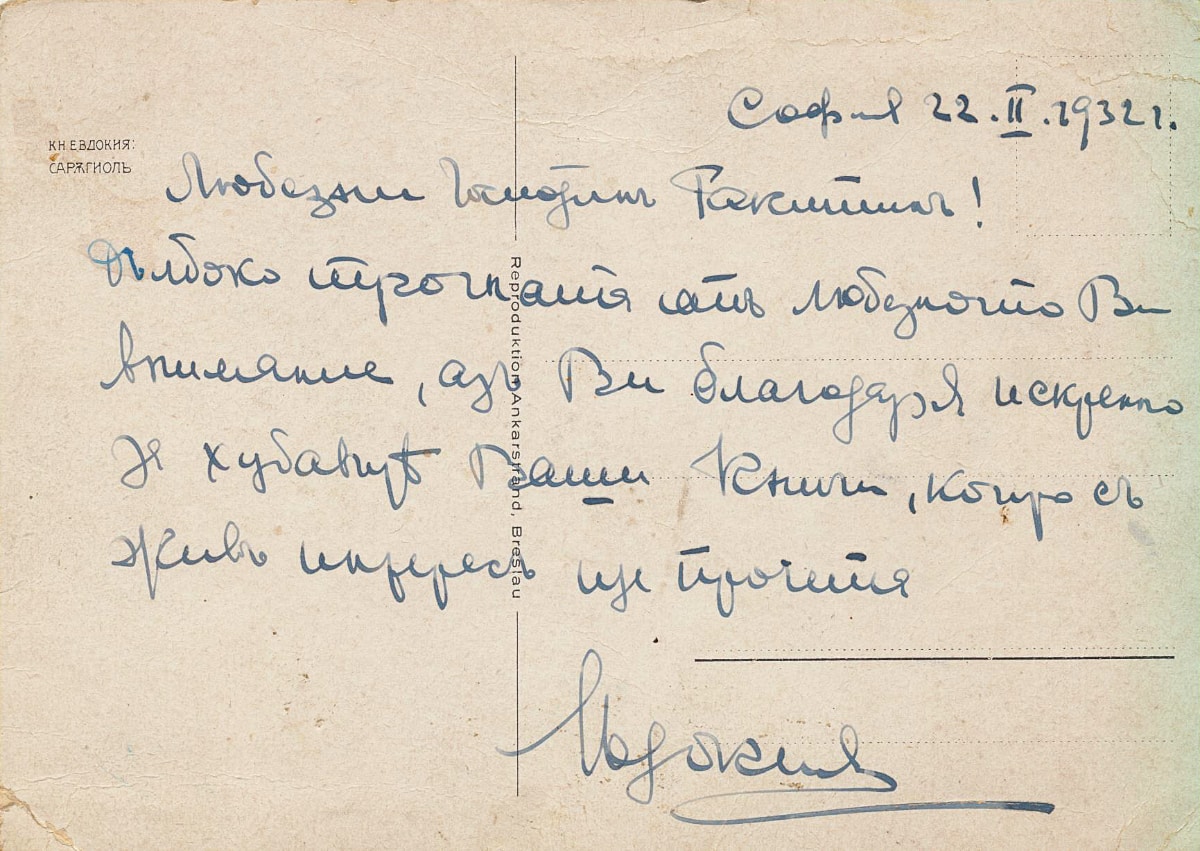 София 22.II.1932 г.
КН ЕВДОКИЯ:
САРѪГИОЛЬ
Любезни Господинъ Ракитинъ!
Дълбоко трогната отъ любезното Ви
внимание, азъ Ви благодаря искренно
за хубавитѣ Ваши книги, които съ
живъ интересъ ще прочета
Евдокия
Reproduktion Ankarstrand, Breslau